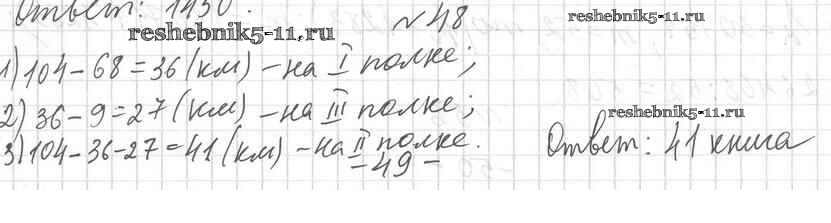 Ответ: 1430.
№48
reshebnik5-11.ru
reshebnik5-11.ru
1) 104-68=36 (км) - на I полке;
2) 36-9=27 (км) - на III полке;
3) 104-36-27=41 (км) - на II полке.
reshebnik5-11.ru
Ответ: 41 книга
-49-